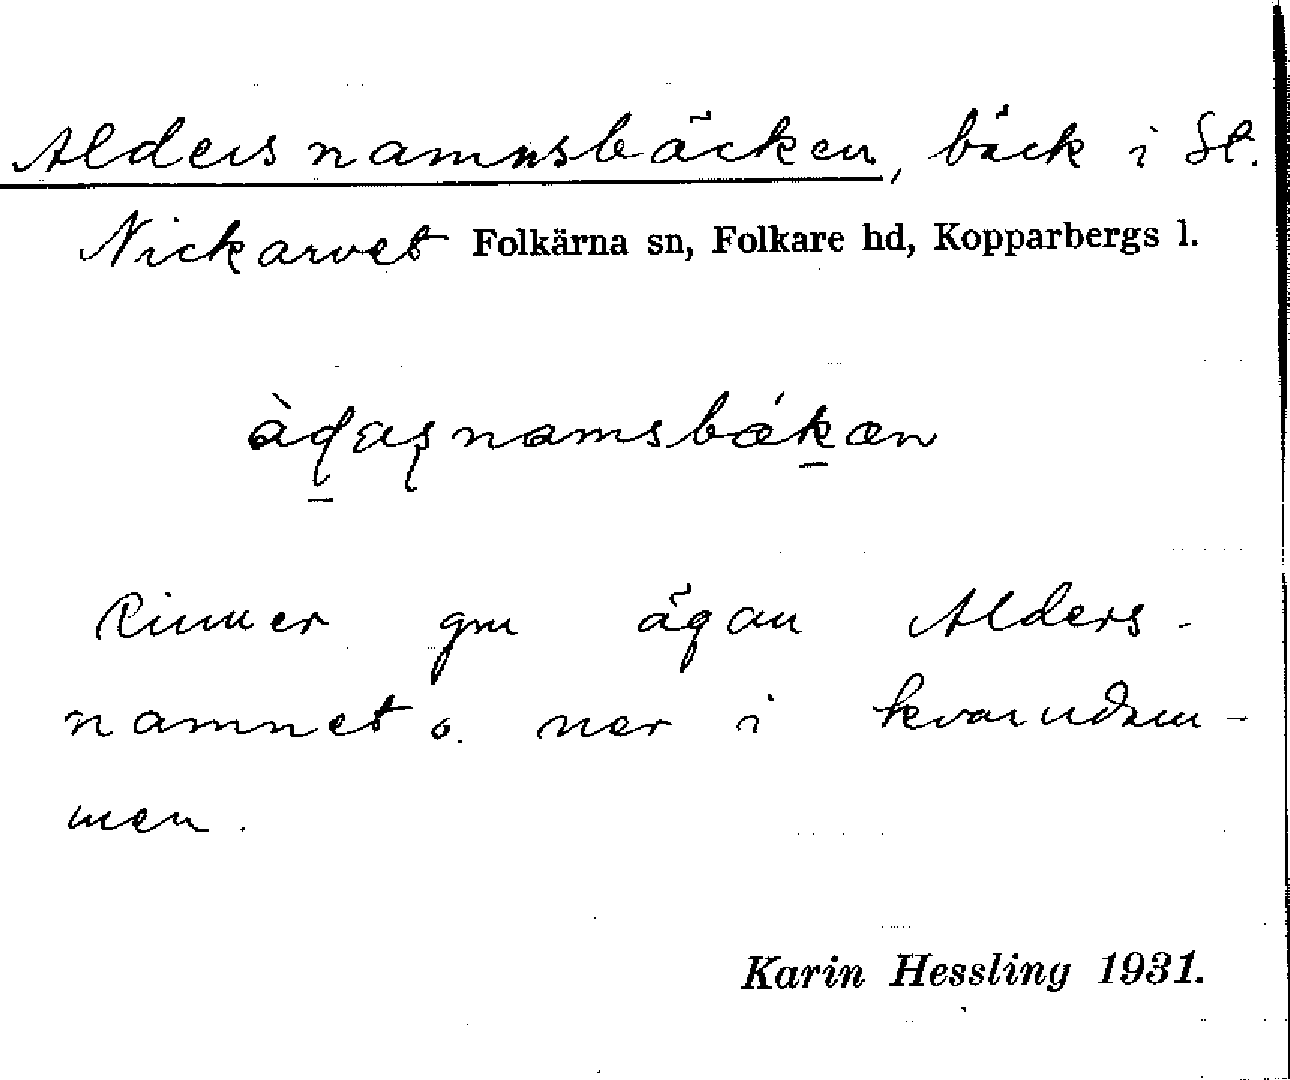 Aldersnamnsbäcken, bäck i St.
Nickarvet Folkärna sn, Folkare hd, Kopparbergs l.
Rinner gm ägan Alders-
namnet o. ner i kvarndam-
men.
Karin Hessling 1931.